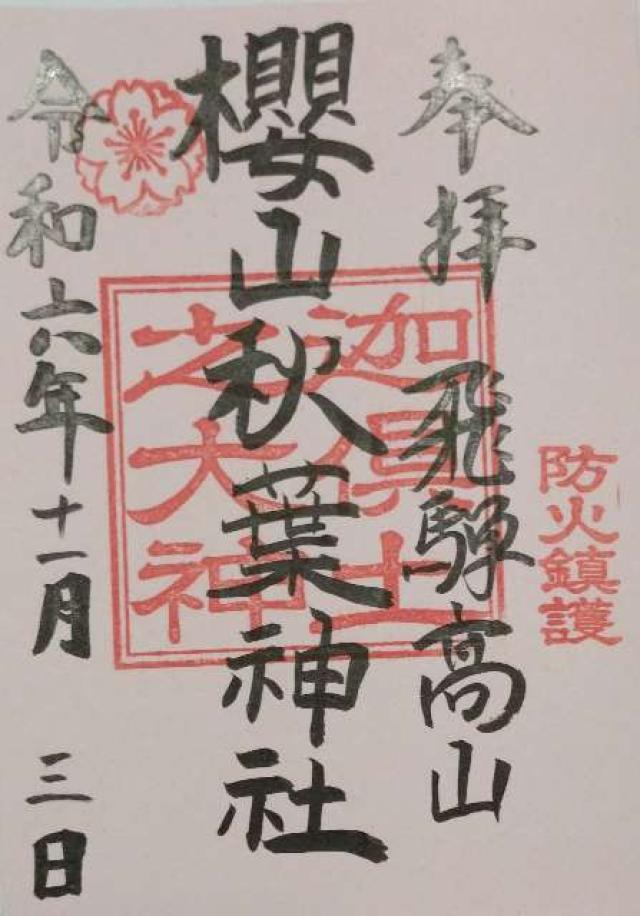 奉拝
飛騨高山
防火鎮護
櫻山秋葉神社
迦具土之大神
令和六年十一月三日